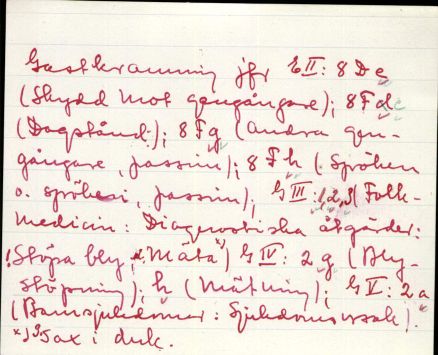 Gastkramning jfr G II: 8 D e
(Skydd mot gengångare); 8 F d
(Dagstånd); 8 F g (Andra gen-
gångare, passim); 8 F h (Spöken
o. spökeri, passim); G III: 1, 2, 3 (Folk-
medicin: Diagnostiska åtgärder:
Stöpa bly, Mäta x) G IV: 2 g (Bly-
stöpning); h (Mätning); G V: 2 a
(Barnsjukdomar: Sjukdomsorsak).
x) Sax i duk.